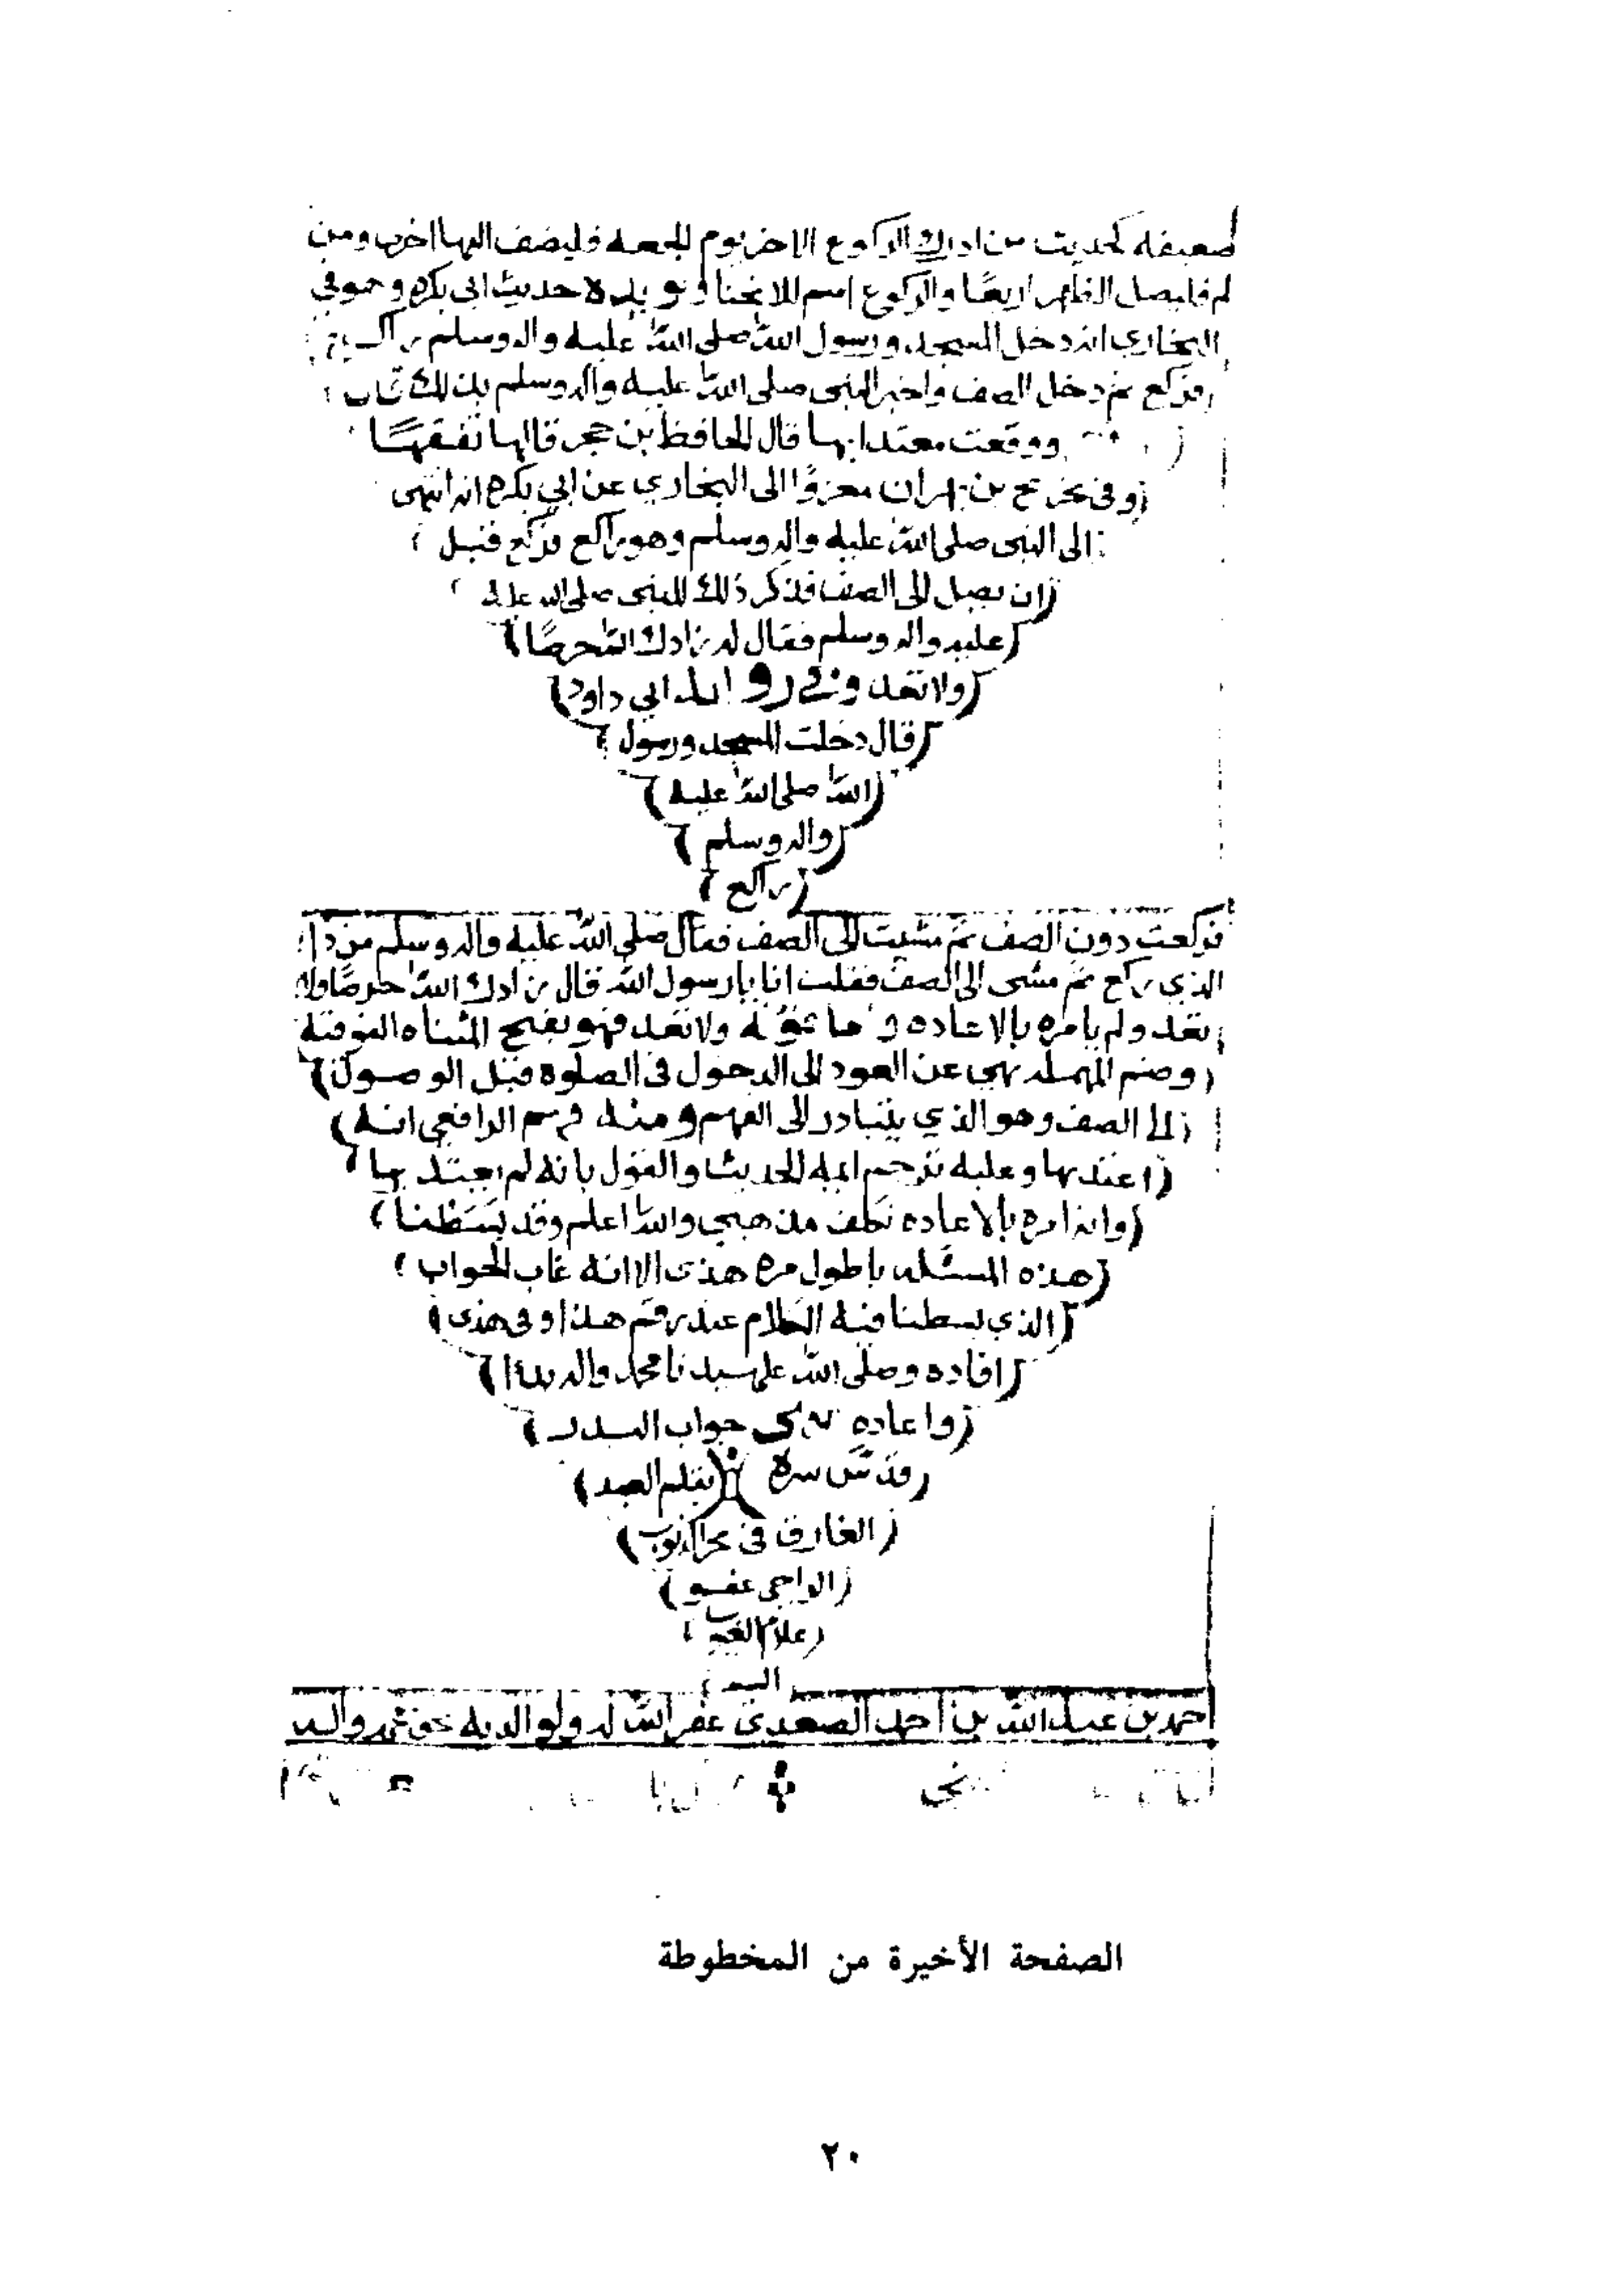 ضعيفه لحديث من ادرك الركوع الاخر يوم الجمعه فليضف اليها اخرى ومن
لم فليصل الظهر اربعًا والركوع اسم للانحنا ويؤيده حديث ابي بكره وهو في
البخاري انه دخل المسجد ورسول الله صلى الله عليه واله وسلم راكع
فركع ثم دخل الصف واخبر النبي صلى الله عليه واله وسلم بذلك
ووقعت معتدا بها قال الحافظ بن حجر قالها تفقهًا
وفي تخريج بن بهران معزوًا الى البخاري عن ابي بكره انه انتهى
الى النبي صلى الله عليه واله وسلم وهو راكع فركع قبل
(ان يصل الى الصف فذكر ذلك للنبي صلى الله عليه
(عليه واله وسلم فقال له زادك الله حرصًا)
(ولا تعد وفي رواية ابي داود)
(قال دخلت المسجد ورسول)
(الله صلى الله عليه)
(واله وسلم)
(راكع)
فركعت دون الصف ثم مشيت الى الصف فقال صلى الله عليه واله وسلم من ذا
الذي ركع ثم مشى الى الصف فقلت انا يا رسول الله قال زادك الله حرصًا ولا
تعد ولم يامره بالاعاده و ما قوله ولا تعد فهو بفتح المثناه الفوقيه
(وضم المهمله نهي عن العود الى الدخول في الصلوة قبل الوصول)
الى الصف وهو الذي يتبادر الى الفهم ومنه فهم الرافعي انه)
(اعتد بها وعليه ترجم ايمة الحديث والقول بانه لم يعتد بها
(وانه امره بالاعاده تكلف مذهبي والله اعلم وقد بسطنا)
(هذه المسئله باطول من هذى الا انه غاب الجواب)
(الذي بسطنا فيه الكلام عند رقم هذا وفي هذى)
(افاده وصلى الله على سيدنا محمد واله
(واعاده جواب البدر)
قدس سره بقلم العبد)
(الغارق في بحر الذنوب)
(الراجي عفو)
(علام الغيوب)
احمد بن عبد الله بن احمد الصعدي غفر الله له ولوالديه بحق محمد واله
الصفحة الأخيرة من المخطوطة
٢٠